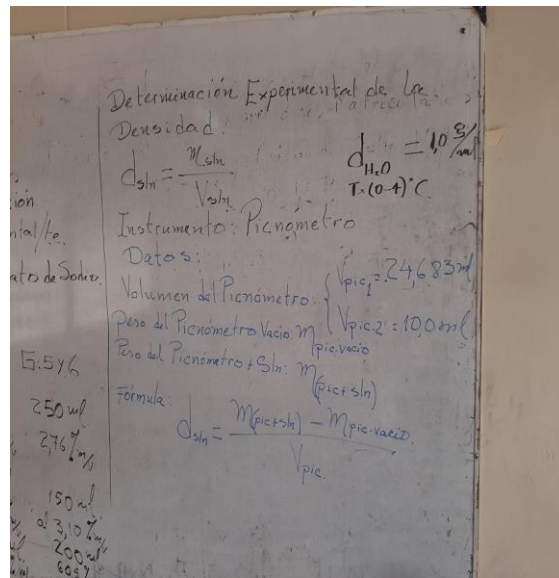 Determinación Experimental de La
Densidad:
d sln = m sln / V sln
d H2O = 1,0 g/ml
T: (0-4)°C
Instrumento: Picnómetro
Datos:
Volumen del Picnómetro: { Vpic1 = 24,683 ml
Vpic.2 = 10,0 ml
Peso del Picnómetro Vacio: m pic.vacio
Peso del Picnómetro + Sln: m(pic+sln)
Fórmula:
d sln = m(pic+sln) - m pic.vacio / Vpic.
ión
ntal/te.
ato de Sodio.
G:5y6
250 ml
2,76 %m/
150 ml
al 3,10 %m/
200 ml